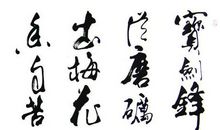 寶劍鋒
從磨礪出
梅花
香自苦